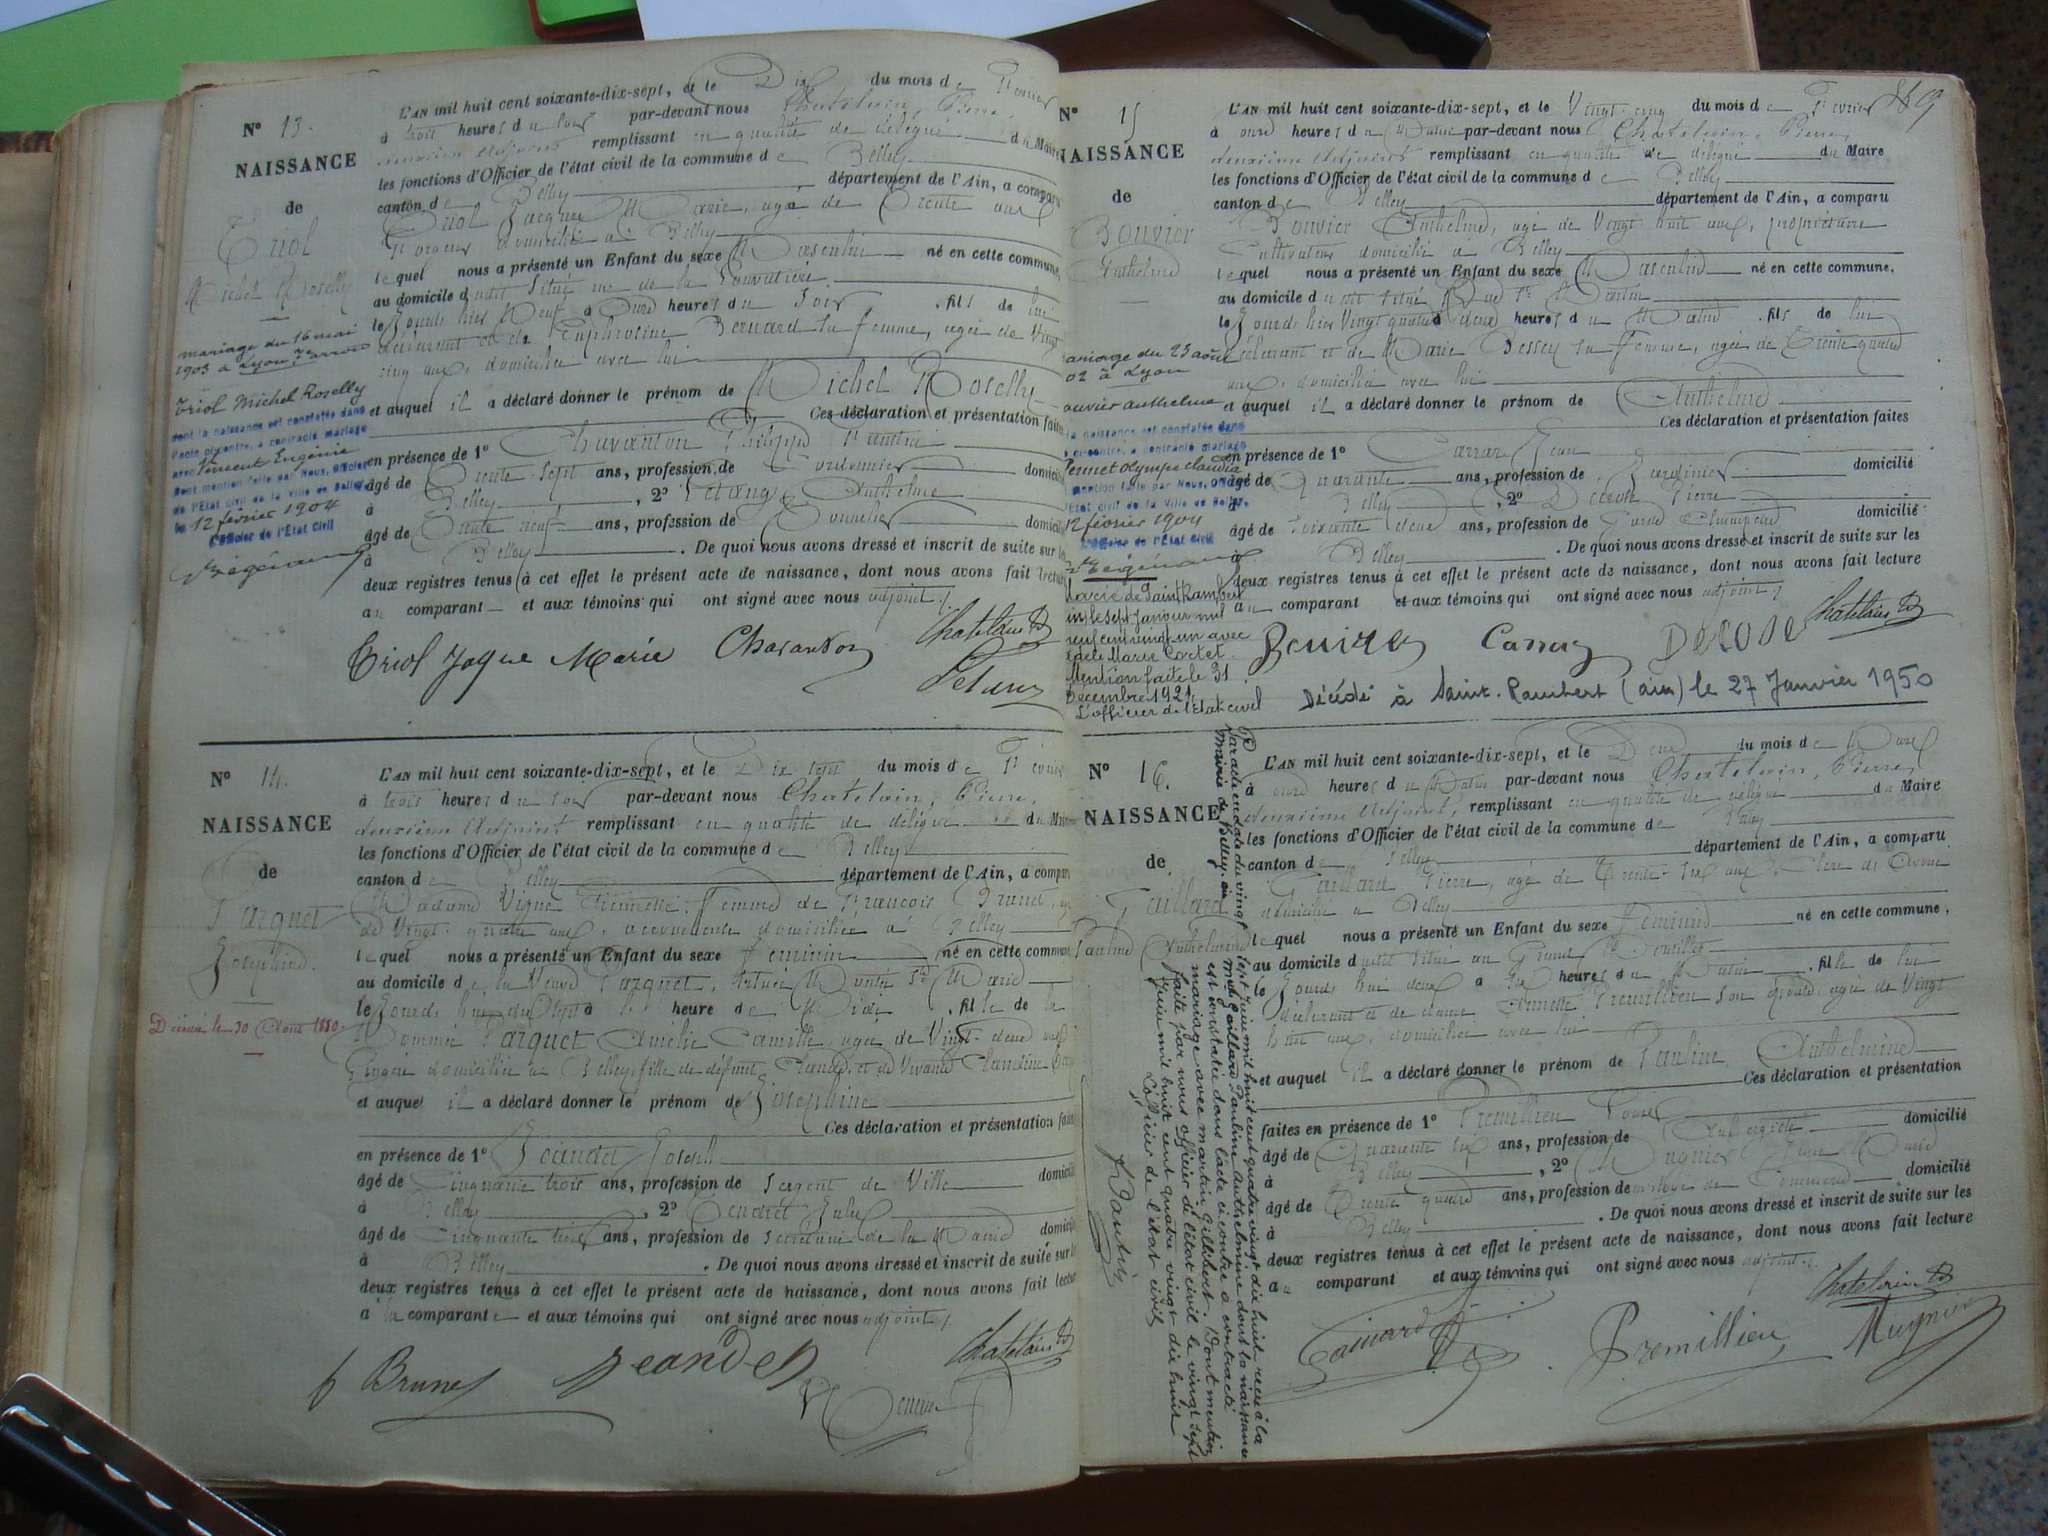 N° 13.
NAISSANCE
de
Triol
Michel Roselly
mariage du 16 mai
1903 à Lyon
Triol Michel Roselly
dont la naissance est constatée dans
l'acte ci-contre, a contracté mariage
avec Vincent Eugénie
Dont mention faite par Nous, Officier
de l'État civil de la Ville de Belley
le 12 février 1904
L'Officier de l'État Civil
L'AN mil huit cent soixante-dix-sept, et le Dix du mois de Février
à trois heures du soir par-devant nous Chatelain, Pierre,
deuxième adjoint remplissant en qualité de délégué du Maire
les fonctions d'Officier de l'état civil de la commune de Belley
canton de Belley département de l'Ain, a comparu
Triol Jacques Marie, agé de Trente ans
domicilié à Belley
lequel nous a présenté un Enfant du sexe Masculin né en cette commune,
au domicile dudit situé rue de la
le Jourd. hier Neuf à onze heures du Soir, fils de lui
déclarant et de Euphrosine Bernard sa femme, agée de Vingt
cinq ans, domiciliée avec lui
et auquel il a déclaré donner le prénom de Michel Roselly
Ces déclaration et présentation faites
en présence de 1° Chavanton Philippe
âgé de Trente sept ans, profession de Cordonnier domicilié
à Belley, 2° Anthelme
âgé de Trente neuf ans, profession de Tonnelier domicilié
à Belley. De quoi nous avons dressé et inscrit de suite sur les
deux registres tenus à cet effet le présent acte de naissance, dont nous avons fait lecture
au comparant et aux témoins qui ont signé avec nous adjoint./.
Triol Jaque Marie Chavanton Chatelain
N° 14.
NAISSANCE
de
Parquet
Joséphine.
Décédée le 30 Août 1880.
L'AN mil huit cent soixante-dix-sept, et le Dix sept du mois de Février
à trois heures du soir par-devant nous Chatelain, Pierre,
deuxième adjoint remplissant en qualité de délégué du Maire
les fonctions d'Officier de l'état civil de la commune de Belley
canton de Belley département de l'Ain, a comparu
Madame Vigne Pierrette, femme de François Brunet,
de Vingt quatre ans, accoucheuse domiciliée à Belley
lequel nous a présenté un Enfant du sexe Féminin né en cette commune
au domicile de la Veuve Parquet, située
le Jourd. hui dix sept à heure de Midi, fille de la
Nommée Parquet Amélie Camille, agée de Vingt deux ans
Lingère domiciliée à Belley, fille de défunt Claude et de Vivante Claudine
et auquel il a déclaré donner le prénom de Joséphine
Ces déclaration et présentation faites
en présence de 1° Jeandet Joseph
âgé de Cinquante trois ans, profession de Sergent de Ville domicilié
à Belley, 2° Jules
âgé de Cinquante trois ans, profession de Secrétaire de la Mairie domicilié
à Belley. De quoi nous avons dressé et inscrit de suite sur les
deux registres tenus à cet effet le présent acte de naissance, dont nous avons fait lecture
à la comparante et aux témoins qui ont signé avec nous adjoint./.
f Brunet Jeandet Chatelain
N° 15
NAISSANCE
de
Bouvier
Anthelme
mariage du 23 août
02 à Lyon
Bouvier Anthelme
la naissance est constatée dans
ci-contre, a contracté mariage
Pernet Olympe Claudia
mention faite par Nous, Officier
l'État civil de la Ville de Belley,
12 février 1904
L'Officier de l'État Civil
Marié de Saint Rambert
le sept janvier mil
neuf cent vingt un avec
Adèle Marie Cortet
Mention faite le 31
Décembre 1921
L'officier de l'état civil
L'AN mil huit cent soixante-dix-sept, et le Vingt cinq du mois de Février
à onze heures du Matin par-devant nous Chatelain, Pierre,
deuxième adjoint remplissant en qualité de délégué du Maire
les fonctions d'Officier de l'état civil de la commune de Belley
canton de Belley département de l'Ain, a comparu
Bouvier Anthelme, agé de Vingt huit ans, propriétaire
Cultivateur domicilié à Belley
lequel nous a présenté un Enfant du sexe Masculin né en cette commune,
au domicile dudit situé Rue St Martin
le Jourd. hier Vingt quatre à deux heures du Matin, fils de lui
déclarant et de Marie Bessey sa femme, agée de Trente quatre
ans, domiciliée avec lui
et auquel il a déclaré donner le prénom de Anthelme
Ces déclaration et présentation faites
en présence de 1° Carraz Jean
âgé de Quarante ans, profession de Jardinier domicilié
à Belley, 2° Decose Pierre
âgé de soixante deux ans, profession de Garde Champêtre domicilié
à Belley. De quoi nous avons dressé et inscrit de suite sur les
deux registres tenus à cet effet le présent acte de naissance, dont nous avons fait lecture
au comparant et aux témoins qui ont signé avec nous adjoint./
Bouvier Carraz Decose Chatelain
Décédé à Saint-Rambert (ain) le 27 Janvier 1950
N° 16.
NAISSANCE
de
Gaillard
Pauline Anthelmine
Par acte en date du vingt sept juin mil huit cent quatre vingt dix huit recu à la
mairie de Belley, Melle Gaillard Pauline Anthelmine dont la naissance
est constatée dans l'acte ci contre a contracté
mariage avec Martin Gillibert. Dont mention
faite par nous officier de l'état civil le vingt sept
juin mil huit cent quatre vingt dix huit
L'officier de l'état civil
L'AN mil huit cent soixante-dix-sept, et le Deux du mois de Mars
à onze heures du Matin par-devant nous Chatelain, Pierre,
deuxième adjoint, remplissant en qualité de délégué du Maire
les fonctions d'Officier de l'état civil de la commune de Belley
canton de Belley département de l'Ain, a comparu
Gaillard Pierre, agé de Trente six ans, Clerc
domicilié à Belley
lequel nous a présenté un Enfant du sexe Féminin né en cette commune,
au domicile dudit situé au Grand
le Jourd. hui deux à six heures du Matin, fille de lui
déclarant et de dame Premillieu son épouse, agée de Vingt
huit ans, domiciliée avec lui
et auquel il a déclaré donner le prénom de Pauline Anthelmine
Ces déclaration et présentation
faites en présence de 1° Premillieu Louis
âgé de Quarante six ans, profession de Aubergiste domicilié
à Belley, 2° Mugnier
âgé de Trente quatre ans, profession de domicilié
à Belley. De quoi nous avons dressé et inscrit de suite sur les
deux registres tenus à cet effet le présent acte de naissance, dont nous avons fait lecture
au comparant et aux témoins qui ont signé avec nous adjoint./.
Chatelain
Gaillard Premillieu Mugnier